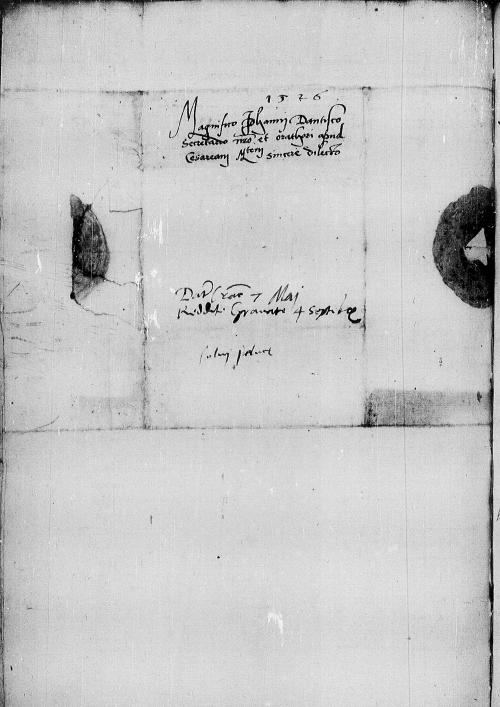 1526
Magnifico Johanni Dantisco
Secretario nro et orathori apud
Cesaream Mtem sincere dilecto
Dat Crac 7 Maj
Reddite Granate 4 Septibr